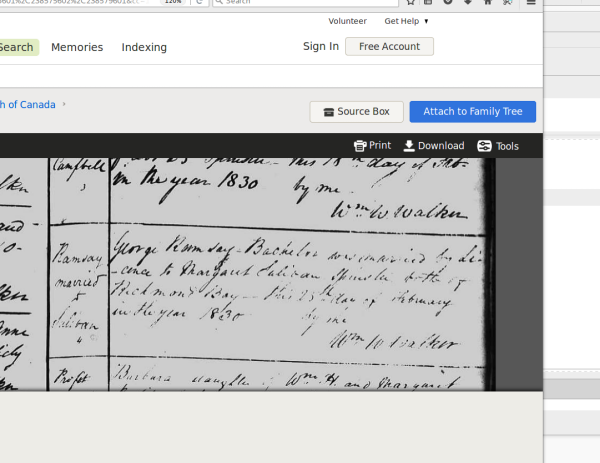 Search
Volunteer Get Help ▼
Search Memories Indexing Sign In Free Account
h of Canada ›
Source Box Attach to Family Tree
Print Download Tools
Campbell
Spinster this 18th day of Feb-
in the year 1830 by me
Wm W Walker
Ramsay
married
to
Sulivan
George Ramsay Bachelor was married by li-
-cence to Margaret Sulivan Spinster both of
Richmond Bay this 25th day of February
in the year 1830 by me
Wm W Walker
Profit
Barbara daughter of Wm H. and Margaret